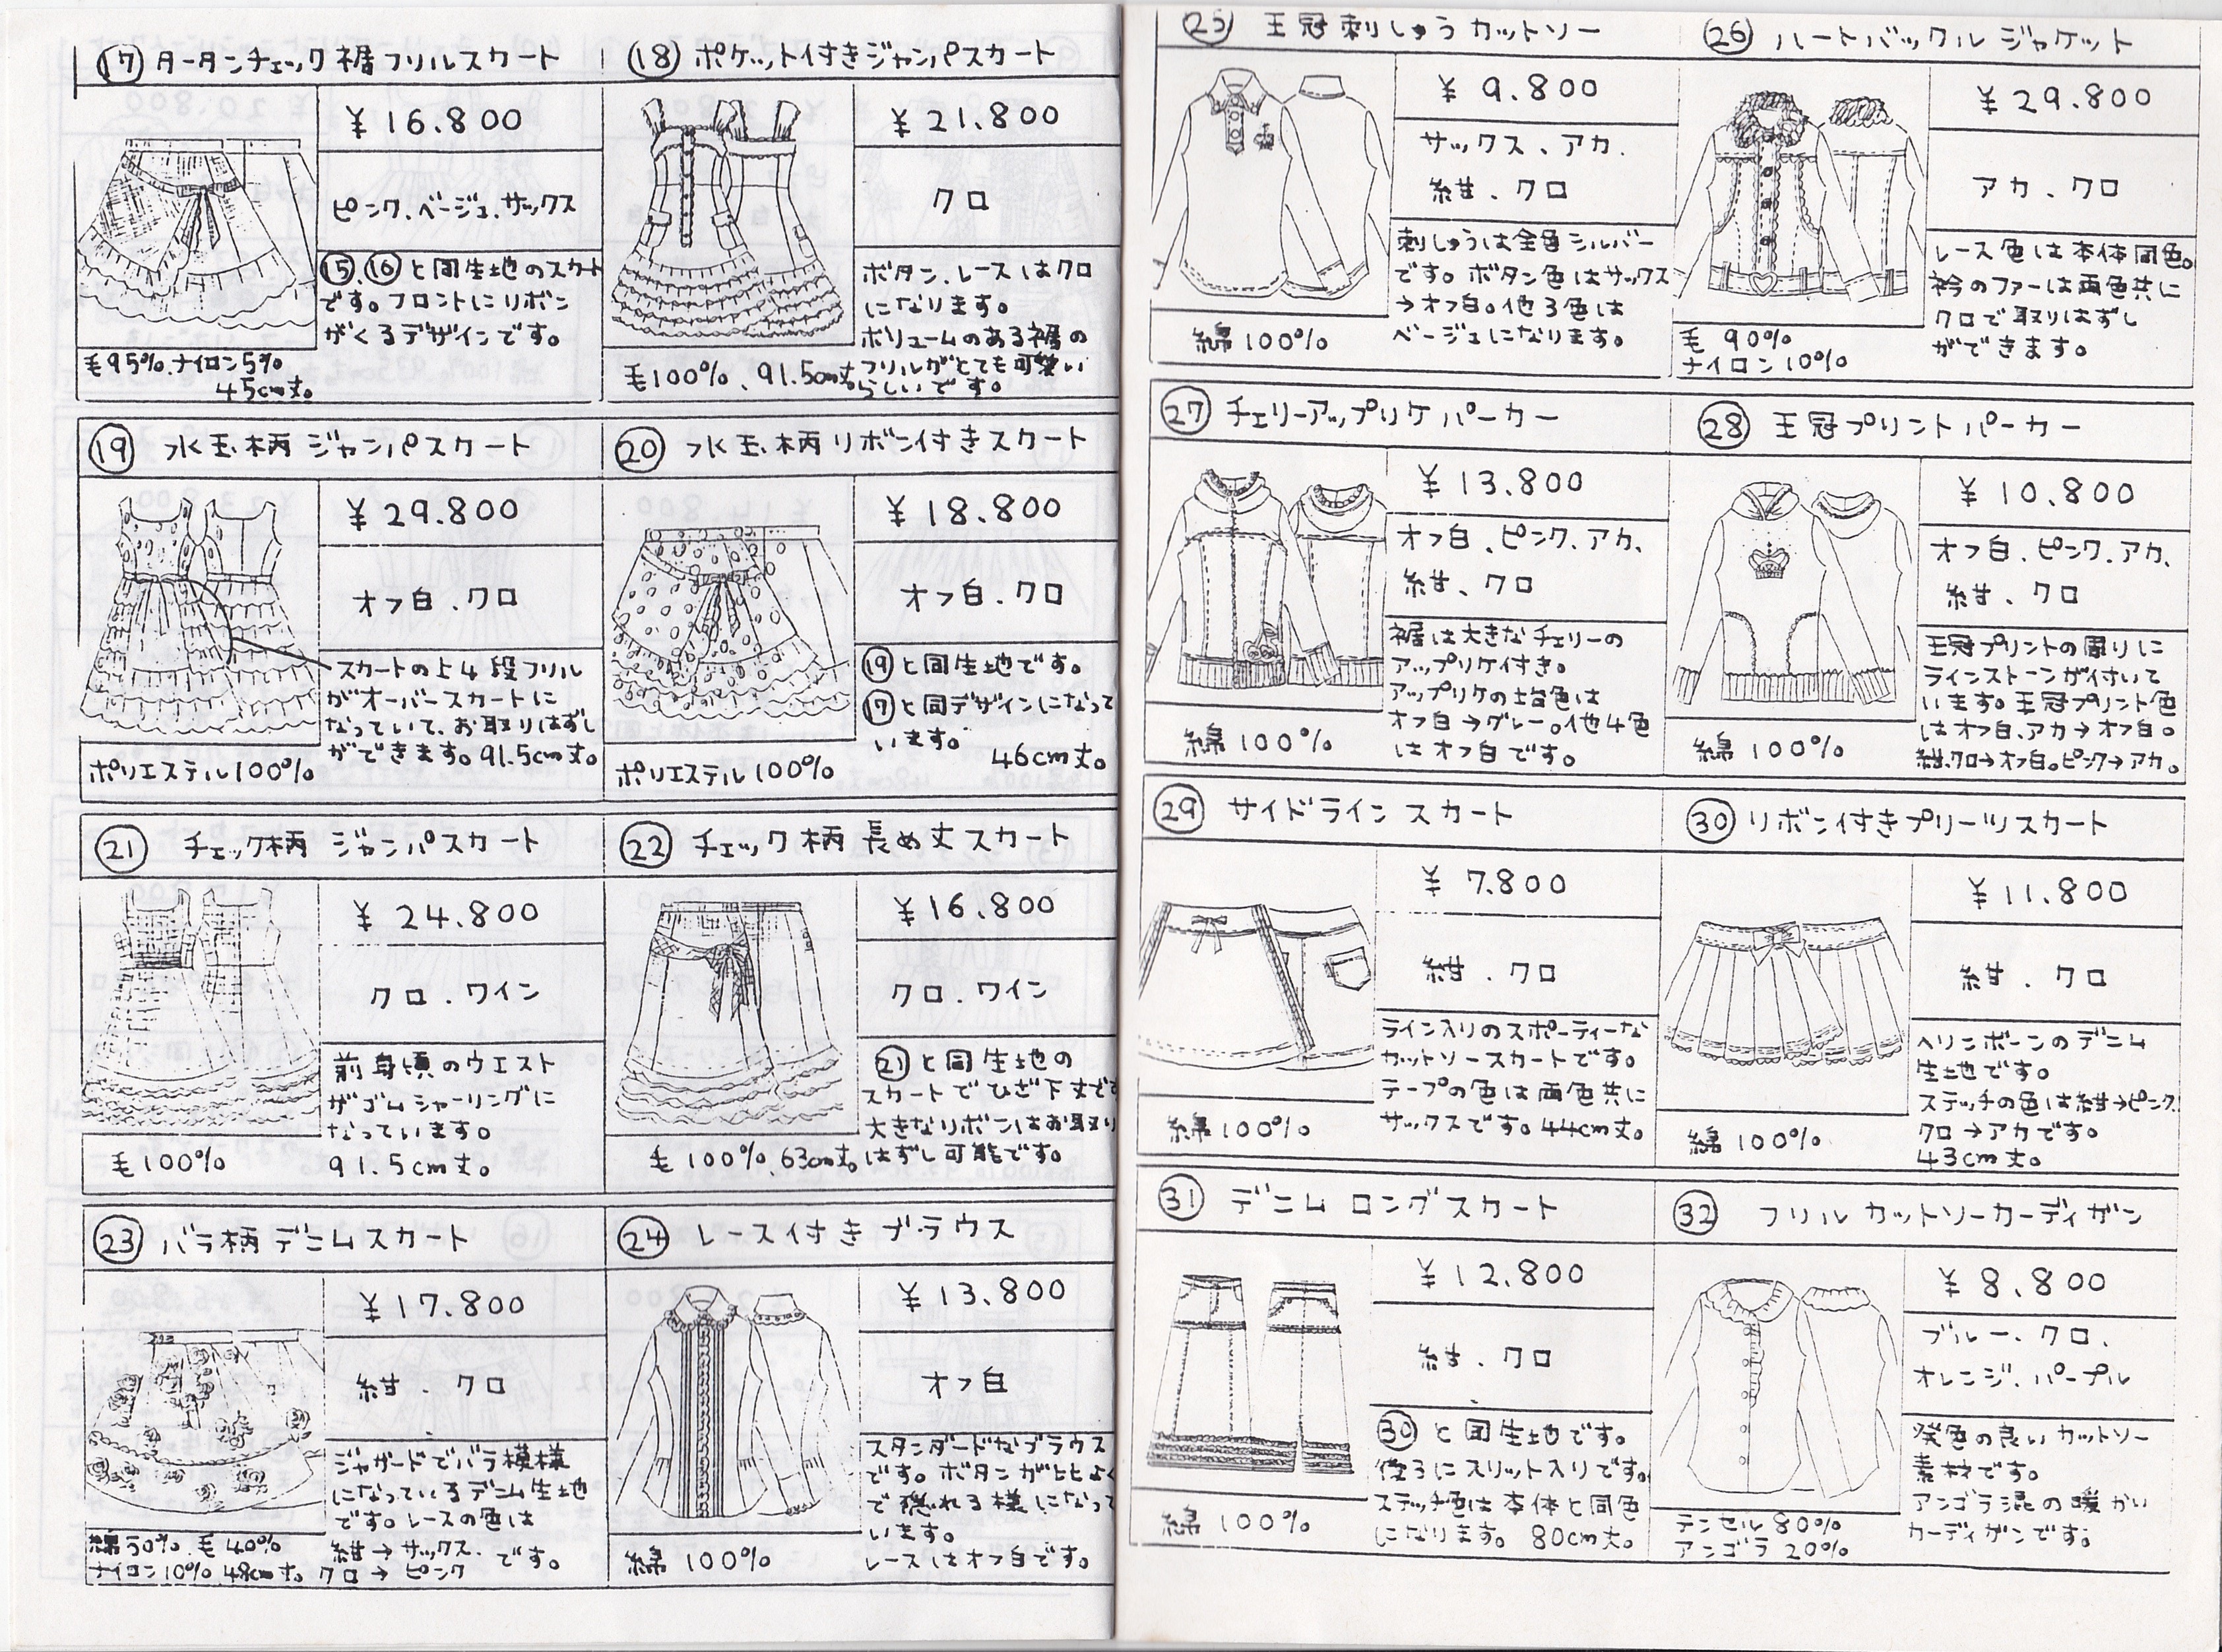 ⑰ タータンチェック裾フリルスカート
¥16.800
ピンク.ベージュ.サックス
⑮.⑯と同生地のスカート
です。フロントにリボン
がくるデザインです。
毛95%.ナイロン5%
45cm丈。
⑱ ポケット付きジャンパスカート
¥21.800
クロ
ボタン.レースはクロ
になります。
ボリュームのある裾の
フリルがとても可愛い
らしいです。
毛100%、91.5cm丈。
⑲ 水玉柄ジャンパスカート
¥29.800
オフ白.クロ
スカートの上4段フリル
がオーバースカートに
なっていて、お取りはずし
ができます。91.5cm丈。
ポリエステル100%
⑳ 水玉柄リボン付きスカート
¥18.800
オフ白.クロ
⑲と同生地です。
⑰と同デザインになって
います。
46cm丈。
ポリエステル100%
㉑ チェック柄 ジャンパスカート
¥24.800
クロ.ワイン
前身頃のウエスト
がゴムシャーリングに
なっています。
91.5cm丈。
毛100%
㉒ チェック柄長め丈スカート
¥16.800
クロ.ワイン
㉑と同生地の
スカートでひざ下丈です
大きなリボンはお取り
はずし可能です。
毛100%.63cm丈。
㉓ バラ柄デニムスカート
¥17.800
紺.クロ
ジャガードでバラ模様
になっているデニム生地
です。レースの色は
紺→サックス.
クロ→ピンク
です。
綿50%.毛40%
ナイロン10% 48cm丈。
㉔ レース付きブラウス
¥13.800
オフ白
スタンダードなブラウス
です。ボタンがヒヨよく
で隠れる様になって
います。
レースはオフ白です。
綿100%
㉕ 王冠刺しゅうカットソー
¥9.800
サックス、アカ.
紺.クロ
刺しゅうは全色シルバー
です。ボタン色はサックス
→オフ白。他3色は
ベージュになります。
綿100%
㉖ ハートバックル ジャケット
¥29.800
アカ.クロ
レース色は本体同色。
衿のファーは両色共に
クロで取りはずし
ができます。
毛90%
ナイロン10%
㉗ チェリーアップリケパーカー
¥13.800
オフ白.ピンク.アカ、
紺、クロ
裾は大きなチェリーの
アップリケ付き。
アップリケの土台色は
オフ白→グレー。他4色
はオフ白です。
綿100%
㉘ 王冠プリントパーカー
¥10.800
オフ白.ピンク.アカ、
紺.クロ
王冠プリントの周りに
ラインストーンが付いて
います。王冠プリント色
はオフ白.アカ→オフ白。
紺.クロ→オフ白。ピンク→アカ。
綿100%
㉙ サイドラインスカート
¥7.800
紺.クロ
ライン入りのスポーティーな
カットソースカートです。
テープの色は両色共に
サックスです。44cm丈。
綿100%
㉚ リボン付きプリーツスカート
¥11.800
紺.クロ
ヘリンボーンのデニム
生地です。
ステッチの色は紺→ピンク
クロ→アカです。
43cm丈。
綿100%
㉛ デニムロングスカート
¥12.800
紺.クロ
㉚と同生地です。
後ろにスリット入りです。
ステッチ色は本体と同色
になります。80cm丈。
綿100%
㉜ フリルカットソーカーディガン
¥8.800
ブルー.クロ.
オレンジ.パープル
発色の良いカットソー
素材です。
アンゴラ混の暖かい
カーディガンです。
テンセル80%
アンゴラ20%